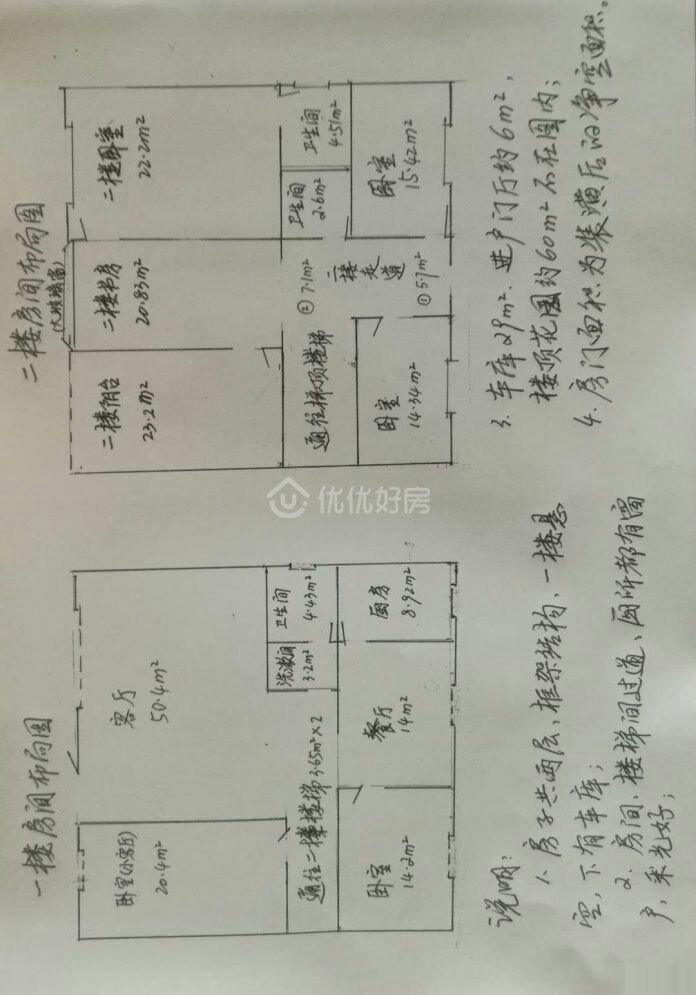 一楼房间布局图
客厅
50.4m²
卧室(小客厅)
20.4m²
卫生间
4.43m²
洗漱间
3.2m²
通往二楼楼梯 3.65m²×2
厨房
8.92m²
餐厅
14m²
卧室
14.2m²
二楼房间布局图
(大玻璃窗)
二楼卧室
22.2m²
二楼书房
20.83m²
二楼阳台
23.2m²
卫生间
4.51m²
卫生间
2.6m²
② 7.1m²
二楼走道
① 5.7m²
通往梯顶楼梯
卧室
15.42m²
卧室
14.34m²
优优好房
说明:
1. 房子共两层,框架结构,一楼悬
空,下有车库;
2. 房间、楼梯间过道、厕所都有窗
户,采光好;
3. 车库29m²、进户门厅约6m²、
楼顶花园约60m²不在图内;
4. 房门面积为装潢后的净空面积。